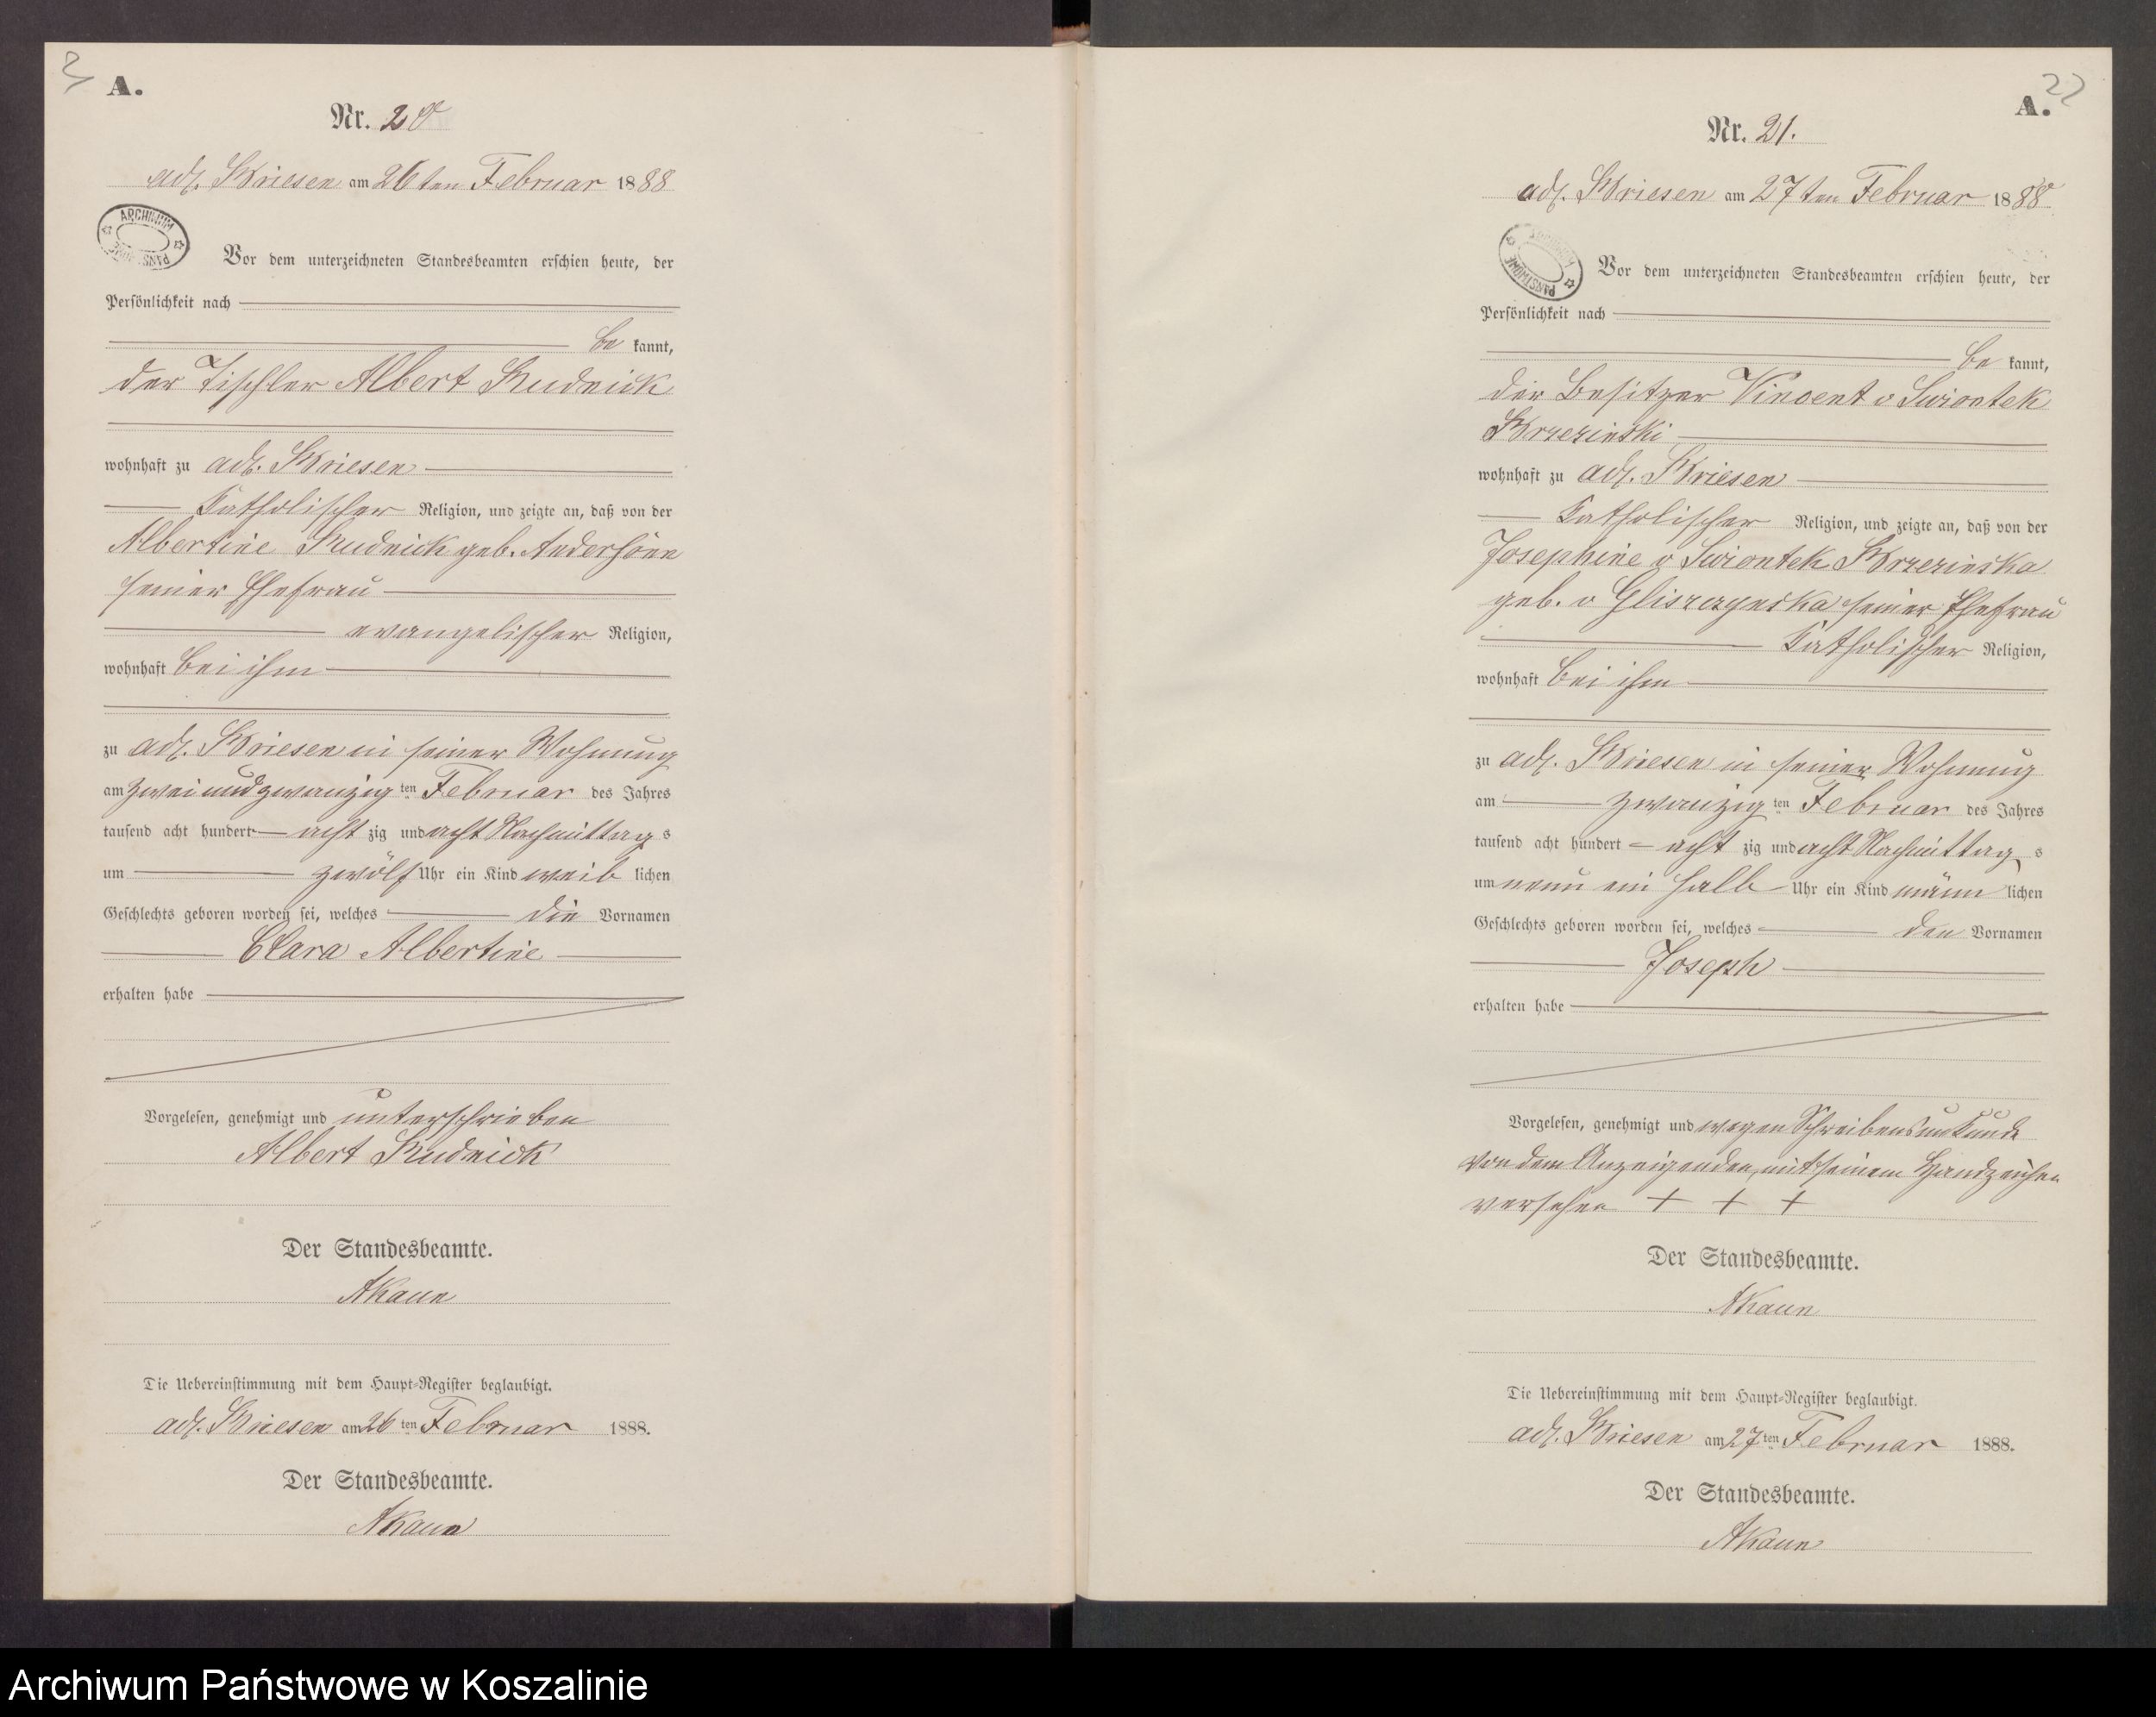 A.
Nr. 20
adl. Briesen am 26ten Februar 1888
ARCHIWUM PAŃSTWOWE
Vor dem unterzeichneten Standesbeamten erschien heute, der
Persönlichkeit nach
be kannt,
der Tischler Albert Rudnick
wohnhaft zu adl. Briesen
katholischer Religion, und zeigte an, daß von der
Albertine Rudnick geb. Anderhönn
seiner Ehefrau
evangelischer Religion,
wohnhaft bei ihm
zu adl. Briesen in seiner Wohnung
am zwei und zwanzig ten Februar des Jahres
tausend acht hundert acht zig und acht Nachmittag s
um zwölf Uhr ein Kind weib lichen
Geschlechts geboren worden sei, welches die Vornamen
Clara Albertine
erhalten habe
Vorgelesen, genehmigt und unterschrieben
Albert Rudnick
Der Standesbeamte.
AKaun
Die Uebereinstimmung mit dem Haupt-Register beglaubigt.
adl. Briesen am 26 ten Februar 1888.
Der Standesbeamte.
AKaun
22
A.
Nr. 21.
adl. Briesen am 27ten Februar 1888
ARCHIWUM PAŃSTWOWE
Vor dem unterzeichneten Standesbeamten erschien heute, der
Persönlichkeit nach
be kannt,
der Besitzer Vincent v Swiontek
Brzezinski
wohnhaft zu adl. Briesen
katholischer Religion, und zeigte an, daß von der
Josephine v Swiontek Brzezinska
geb. v Gliszczynska seiner Ehefrau
katholischer Religion,
wohnhaft bei ihm
zu adl. Briesen in seiner Wohnung
am zwanzig ten Februar des Jahres
tausend acht hundert acht zig und acht Nachmittag s
um neun ein halb Uhr ein Kind männ lichen
Geschlechts geboren worden sei, welches den Vornamen
Joseph
erhalten habe
Vorgelesen, genehmigt und wegen Schreibensunkunde
von dem Anzeigenden, mit seinem Handzeichen
versehen + + +
Der Standesbeamte.
AKaun
Die Uebereinstimmung mit dem Haupt-Register beglaubigt.
adl. Briesen am 27 ten Februar 1888.
Der Standesbeamte.
AKaun
Archiwum Państwowe w Koszalinie